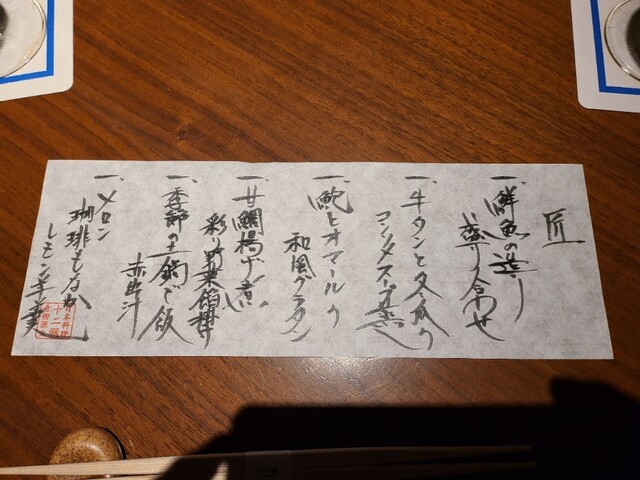 匠
一、鮮魚の造り
盛り合わせ
一、牛タンと大根の
コンソメスープ煮
一、鮑とオマールの
和風グラタン
一、甘鯛揚げ煮
彩り野菜
一、季節の土鍋ご飯
赤出汁
一、メロン
珈琲
レモン
十二